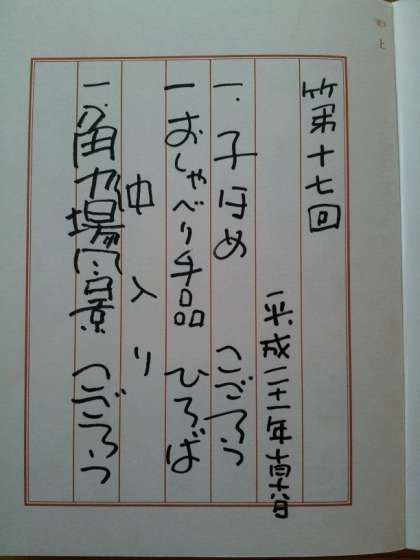 第十七回
平成二十一年十月十六日
一.子ほめ こごろう
一 おしゃべり手品 ひろば
中入り
一.角力場風景 こごろう